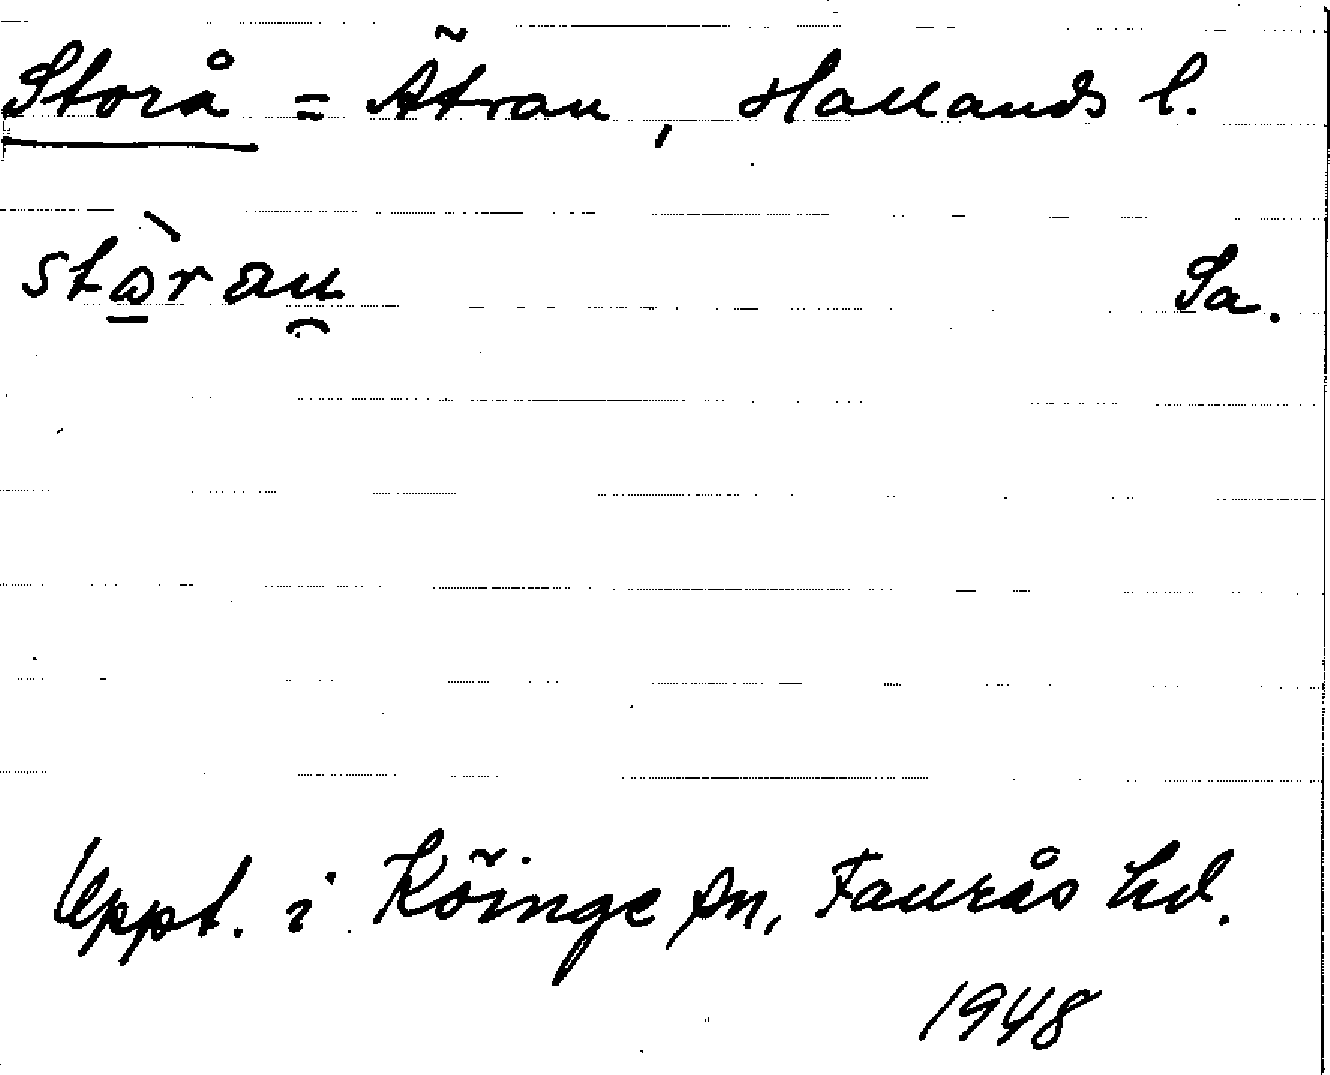 Storå = Ätran, Hallands l.
stὼ̱ran̯ Sa.
Uppt. i Köinge sn, Faurås hd.
1948